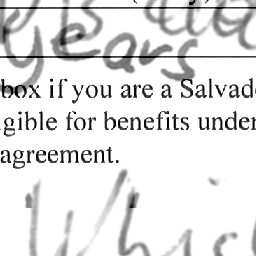 years
box if you are a Salvad
gible for benefits under
agreement.
Whic